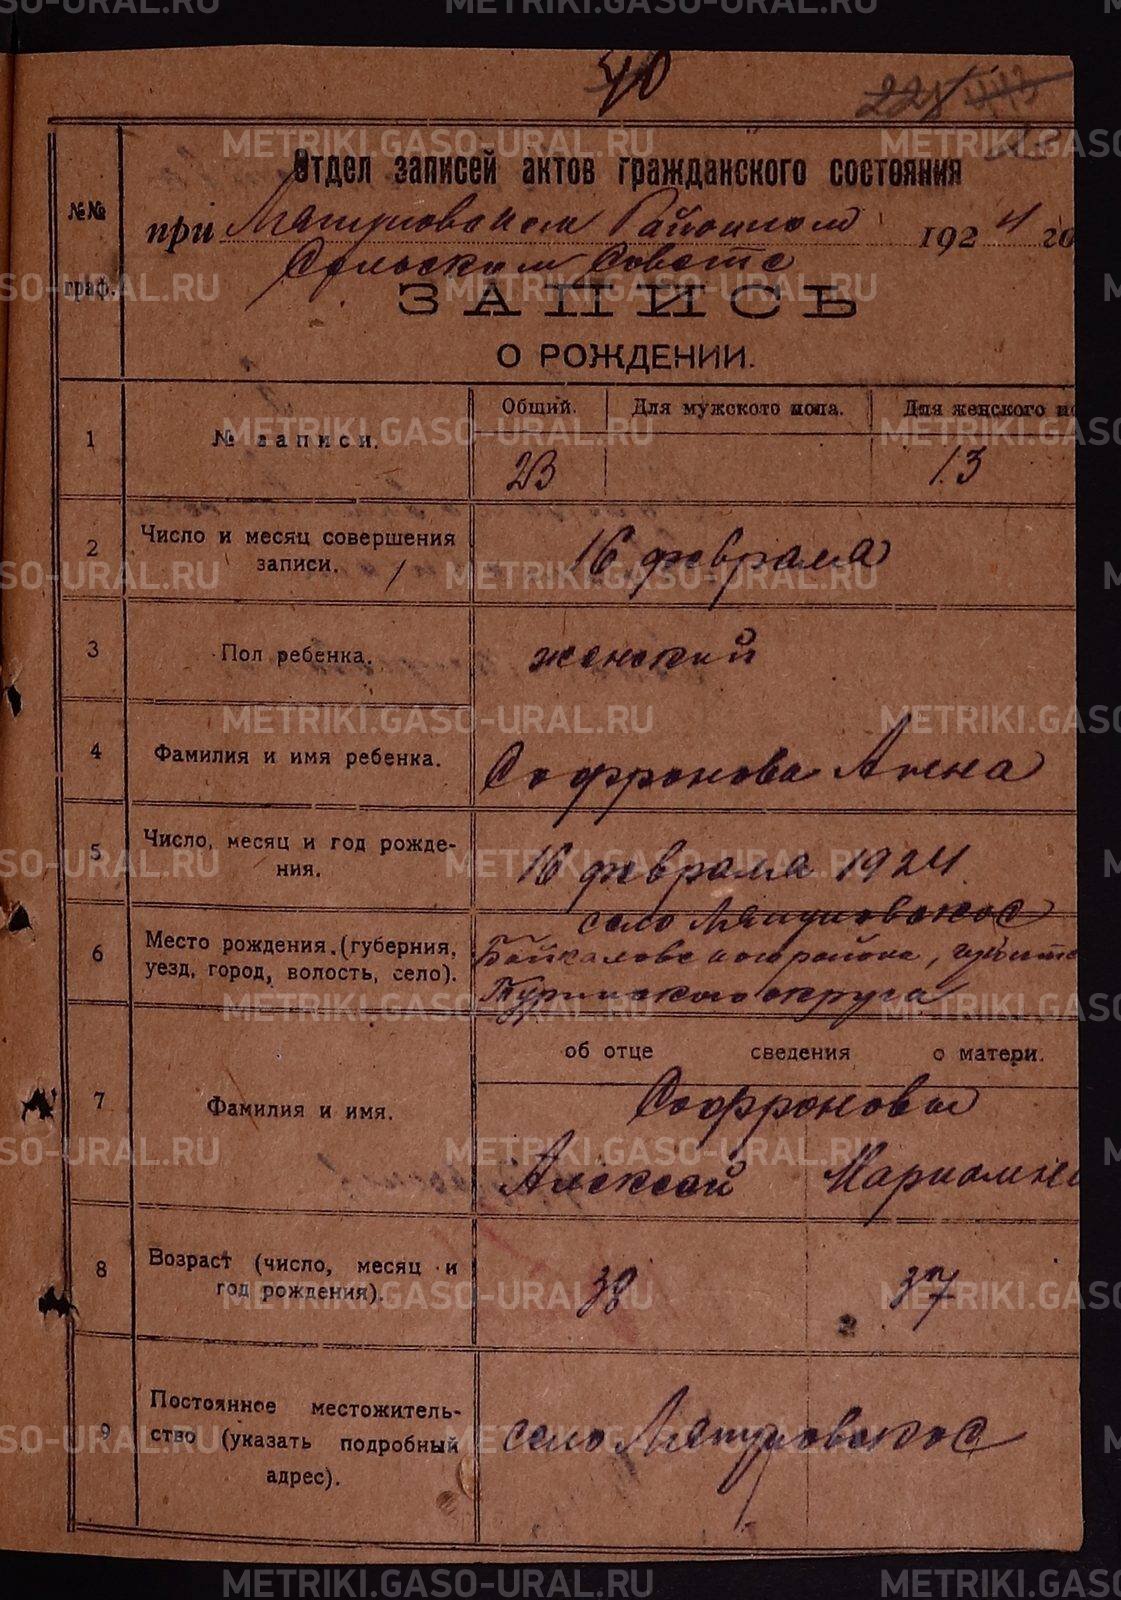 METRIKI.GASO-URAL.RU
40
221 443
Отдел записей актов гражданского состояния
№№
граф.
при Ляпуновском Районном 1924 го
Сельском Совете
ЗАПИСЬ
О РОЖДЕНИИ.
Общий. Для мужского пола. Для женского по
1 № записи. 23 13
2 Число и месяц совершения записи. 16 февраля
3 Пол ребенка. женский
4 Фамилия и имя ребенка. Софронова Анна
5 Число, месяц и год рожде-
ния. 16 февраля 1924
село Ляпуновское
6 Место рождения.(губерния,
уезд, город, волость, село). Байкаловского района,
Туринского округа
об отце сведения о матери.
7 Фамилия и имя. Софроновы
Алексей Мариамна
8 Возраст (число, месяц и
год рождения). 38 37
9 Постоянное местожитель-
ство (указать подробный
адрес). село Ляпуновское